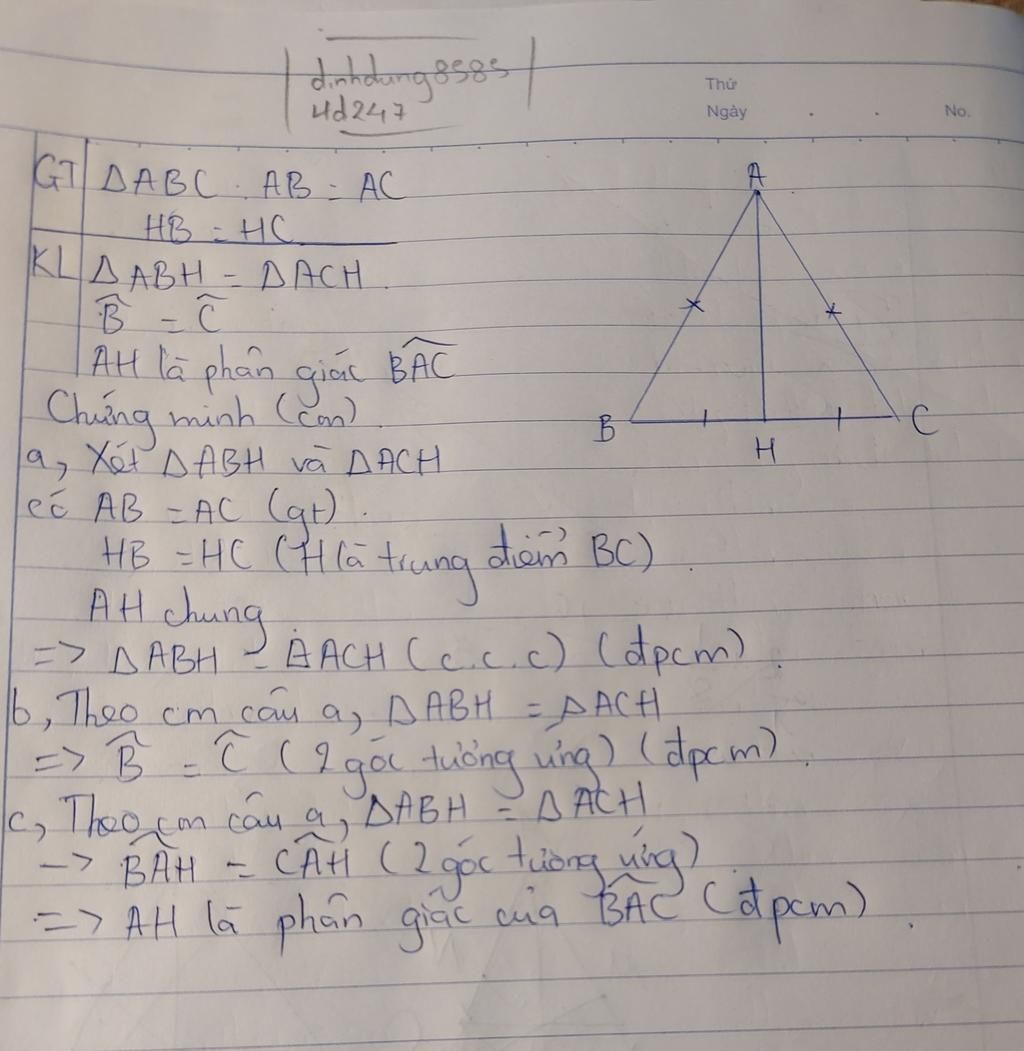 dinhdung8585
4d247
Thứ
Ngày . . No.
GT ΔABC . AB = AC
HB = HC
KL ΔABH = ΔACH.
B̂ = Ĉ
AH là phân giác B͡AC
Chứng minh (cm).
a, Xét ΔABH và ΔACH
có AB = AC (gt).
HB = HC (H là trung điểm BC).
AH chung
=> ΔABH = ΔACH (c.c.c) (đpcm).
b, Theo cm câu a, ΔABH = ΔACH
=> B̂ = Ĉ (2 góc tương ứng) (đpcm).
c, Theo cm câu a, ΔABH = ΔACH
-> B͡AH = C͡AH (2 góc tương ứng)
=> AH là phân giác của B͡AC (đpcm).
A
B
H
C